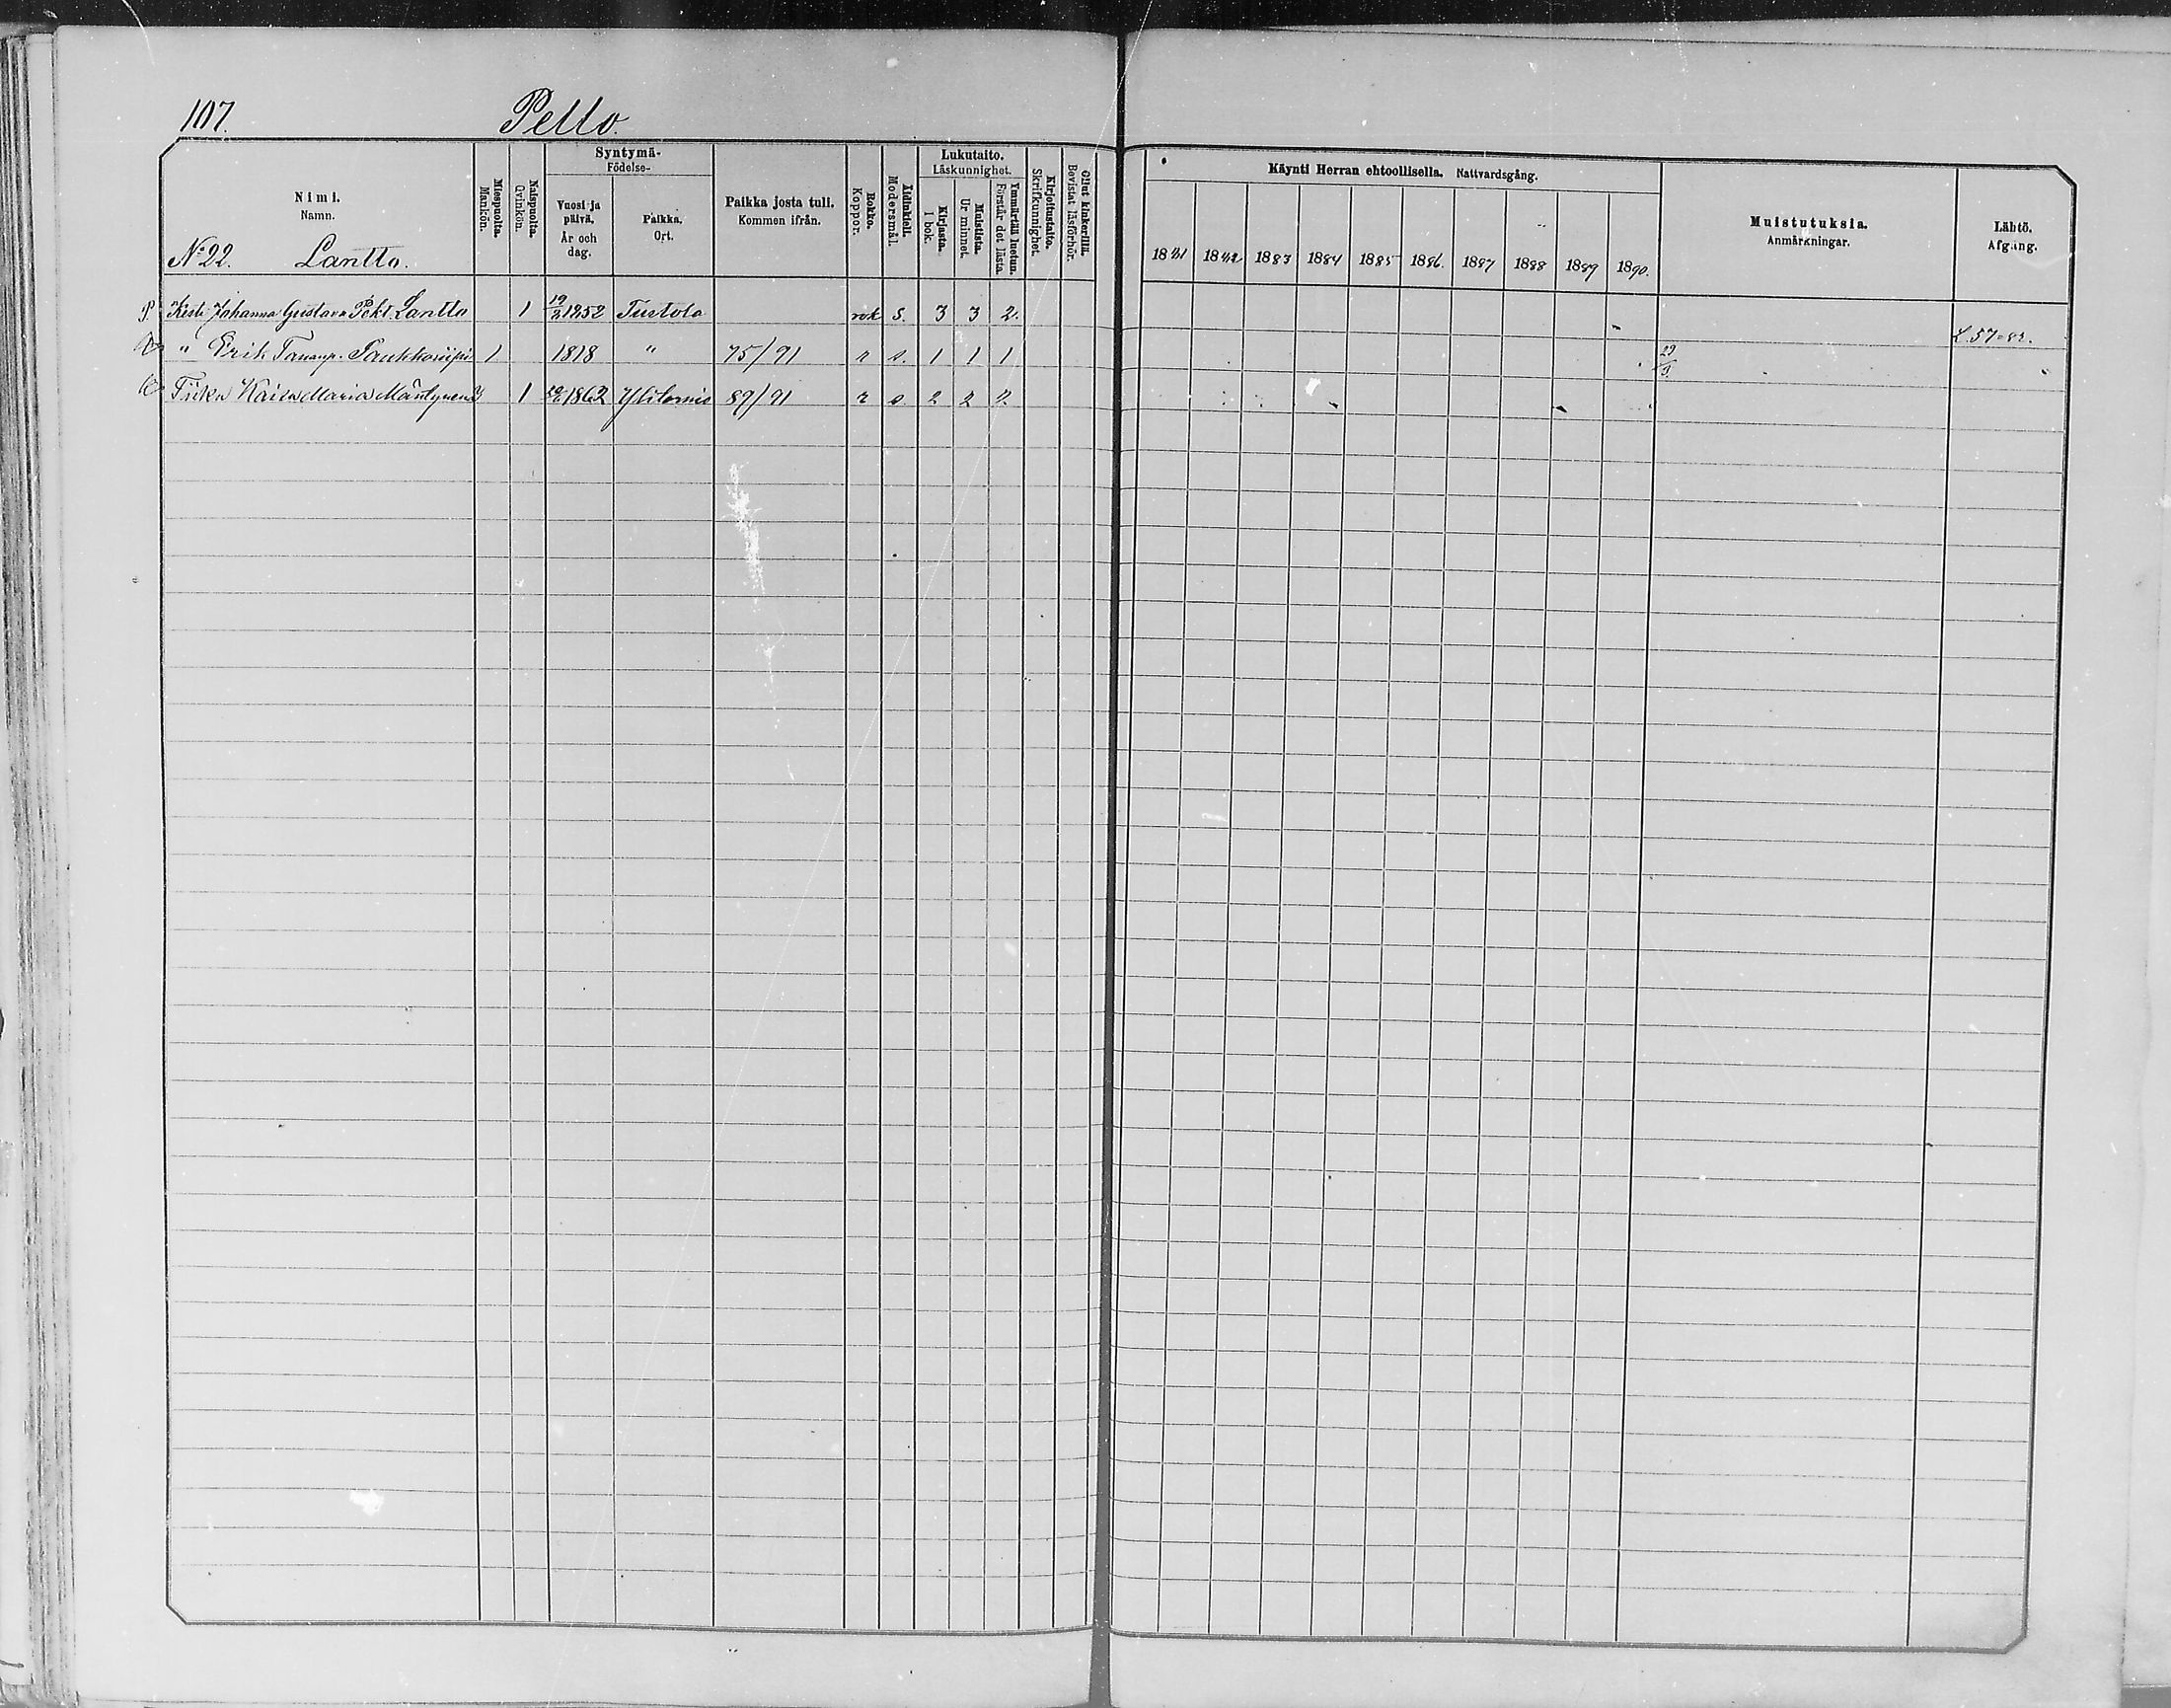 107. Pello.
Nimi. Namn.
Miespuolta. Mankön.
Naispuolta. Qvinkön.
Syntymä- Födelse-
Vuosi ja päivä. År och dag.
Paikka. Ort.
Paikka josta tuli. Kommen ifrån.
Rokko. Koppor.
Äidinkieli. Modersmål.
Lukutaito. Läskunnighet.
Kirjasta. I bok.
Muistista. Ur minnet.
Ymmärtää luetun. Förstår det lästa.
Kirjoitustaito. Skrifkunnighet.
Ollut kinkerillä. Bevistat läsförhör.
Käynti Herran ehtoollisella. Nattvardsgång.
1881 1882 1883 1884 1885 1886. 1887 1888 1889 1890.
Muistutuksia. Anmärkningar.
Lähtö. Afgång.
No 22. Lantto.
Johanna Gustava Lantto 1 19/2 1852 Turtola rok s. 3 3 2. L. 57=82.
" Erik 1 1818 " 75/91 r s. 1 1 1
Kaisa Maria 1 1862 Ylitornio 89/91 r s. 2 2 2.